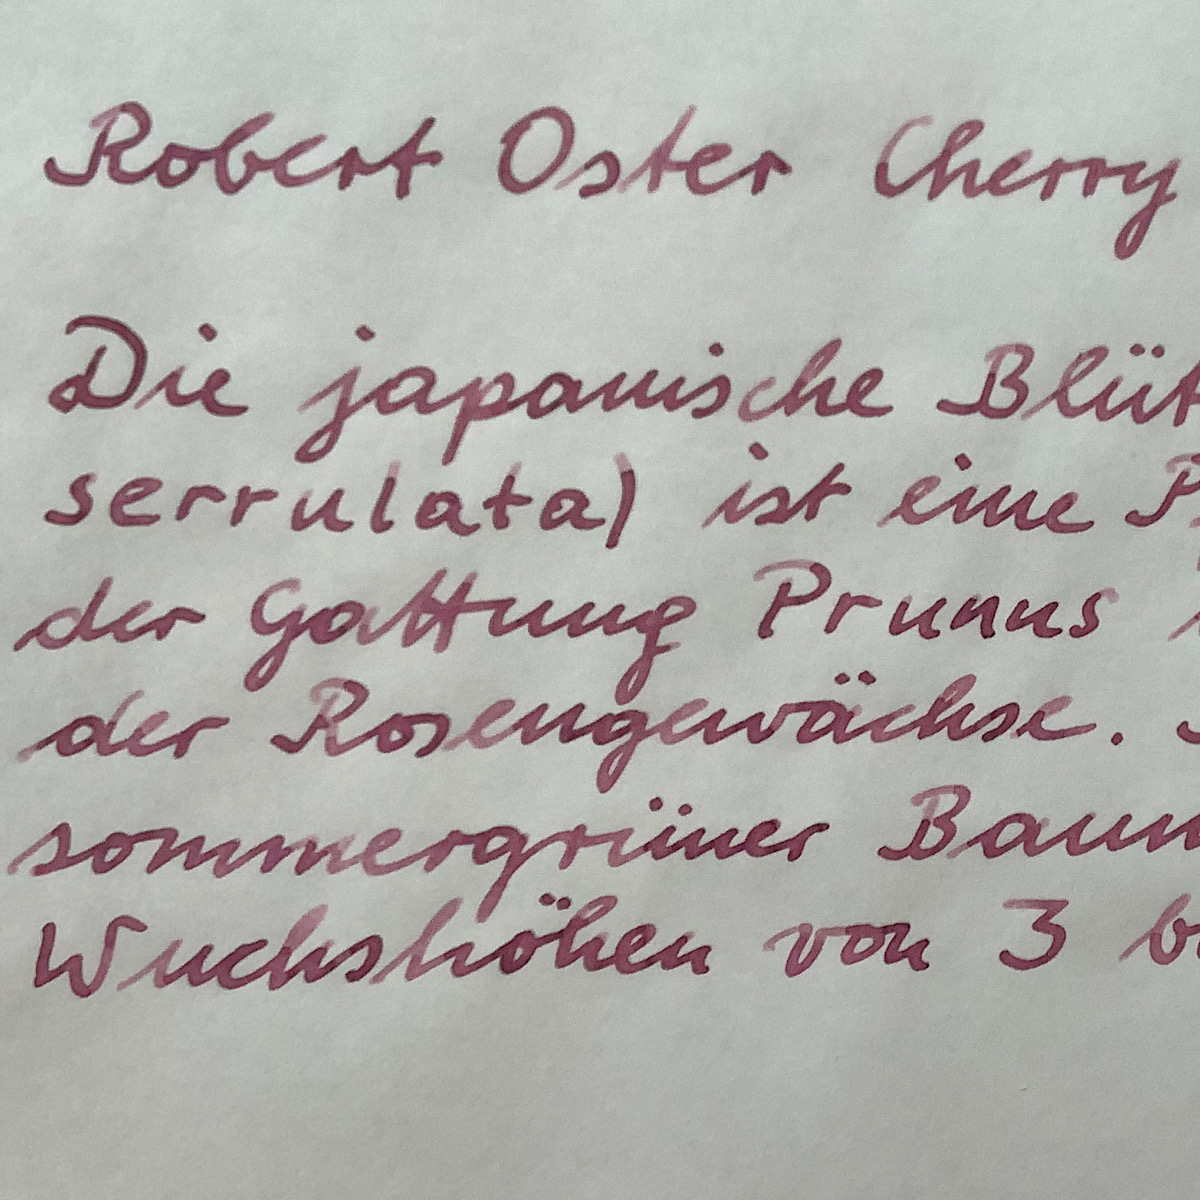 Robert Oster Cherry
Die japanische Blüt
serrulata) ist eine
der Gattung Prunus
der Rosengewächse.
sommergrüner Baum
Wuchshöhen von 3 b